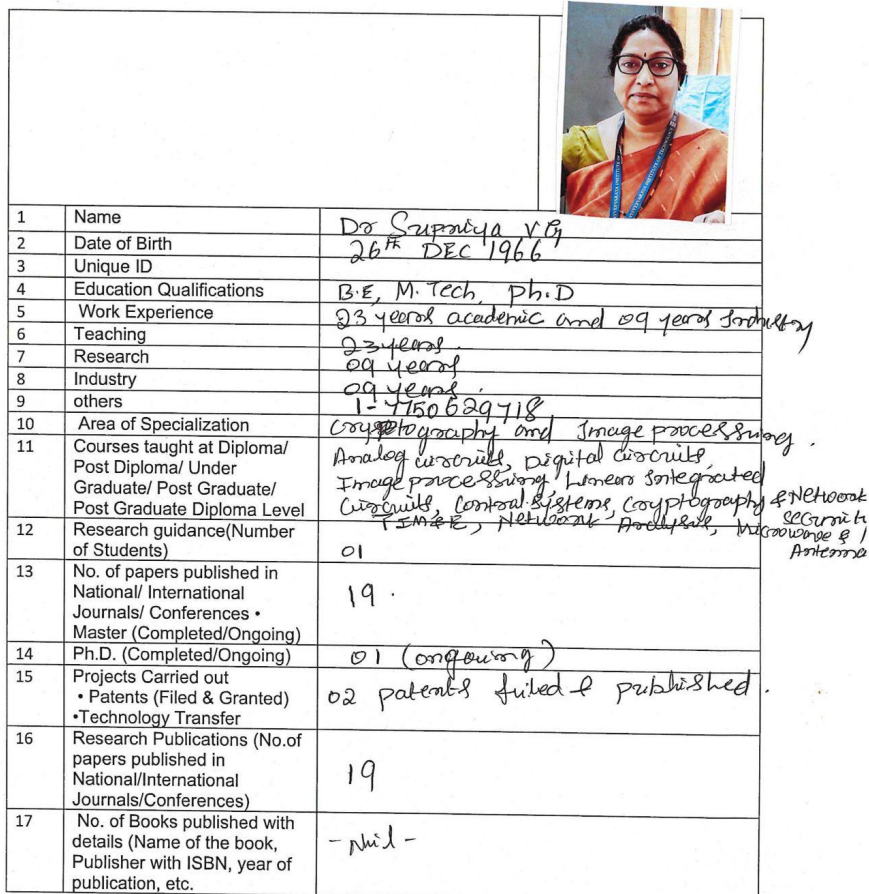 1 Name Dr Supriya V G
2 Date of Birth 26th DEC 1966
3 Unique ID
4 Education Qualifications B.E, M.Tech, Ph.D
5 Work Experience 23 years academic and 09 years Industry
6 Teaching 23 years.
7 Research 09 years
8 Industry 09 years.
9 others 1-7750629718
10 Area of Specialization Cryptography and Image processing.
11 Courses taught at Diploma/ Analog circuits, Digital circuits,
Post Diploma/ Under Image processing, Linear Integrated
Graduate/ Post Graduate/ Circuits, Control Systems, Cryptography & Network
Post Graduate Diploma Level Security
Network Analysis, Microwave &
Antenna
12 Research guidance(Number
of Students) 01
13 No. of papers published in
National/ International 19.
Journals/ Conferences •
Master (Completed/Ongoing)
14 Ph.D. (Completed/Ongoing) 01 (ongoing)
15 Projects Carried out
• Patents (Filed & Granted) 02 patents filed & published.
•Technology Transfer
16 Research Publications (No.of
papers published in
National/International 19
Journals/Conferences)
17 No. of Books published with
details (Name of the book, - Nil -
Publisher with ISBN, year of
publication, etc.